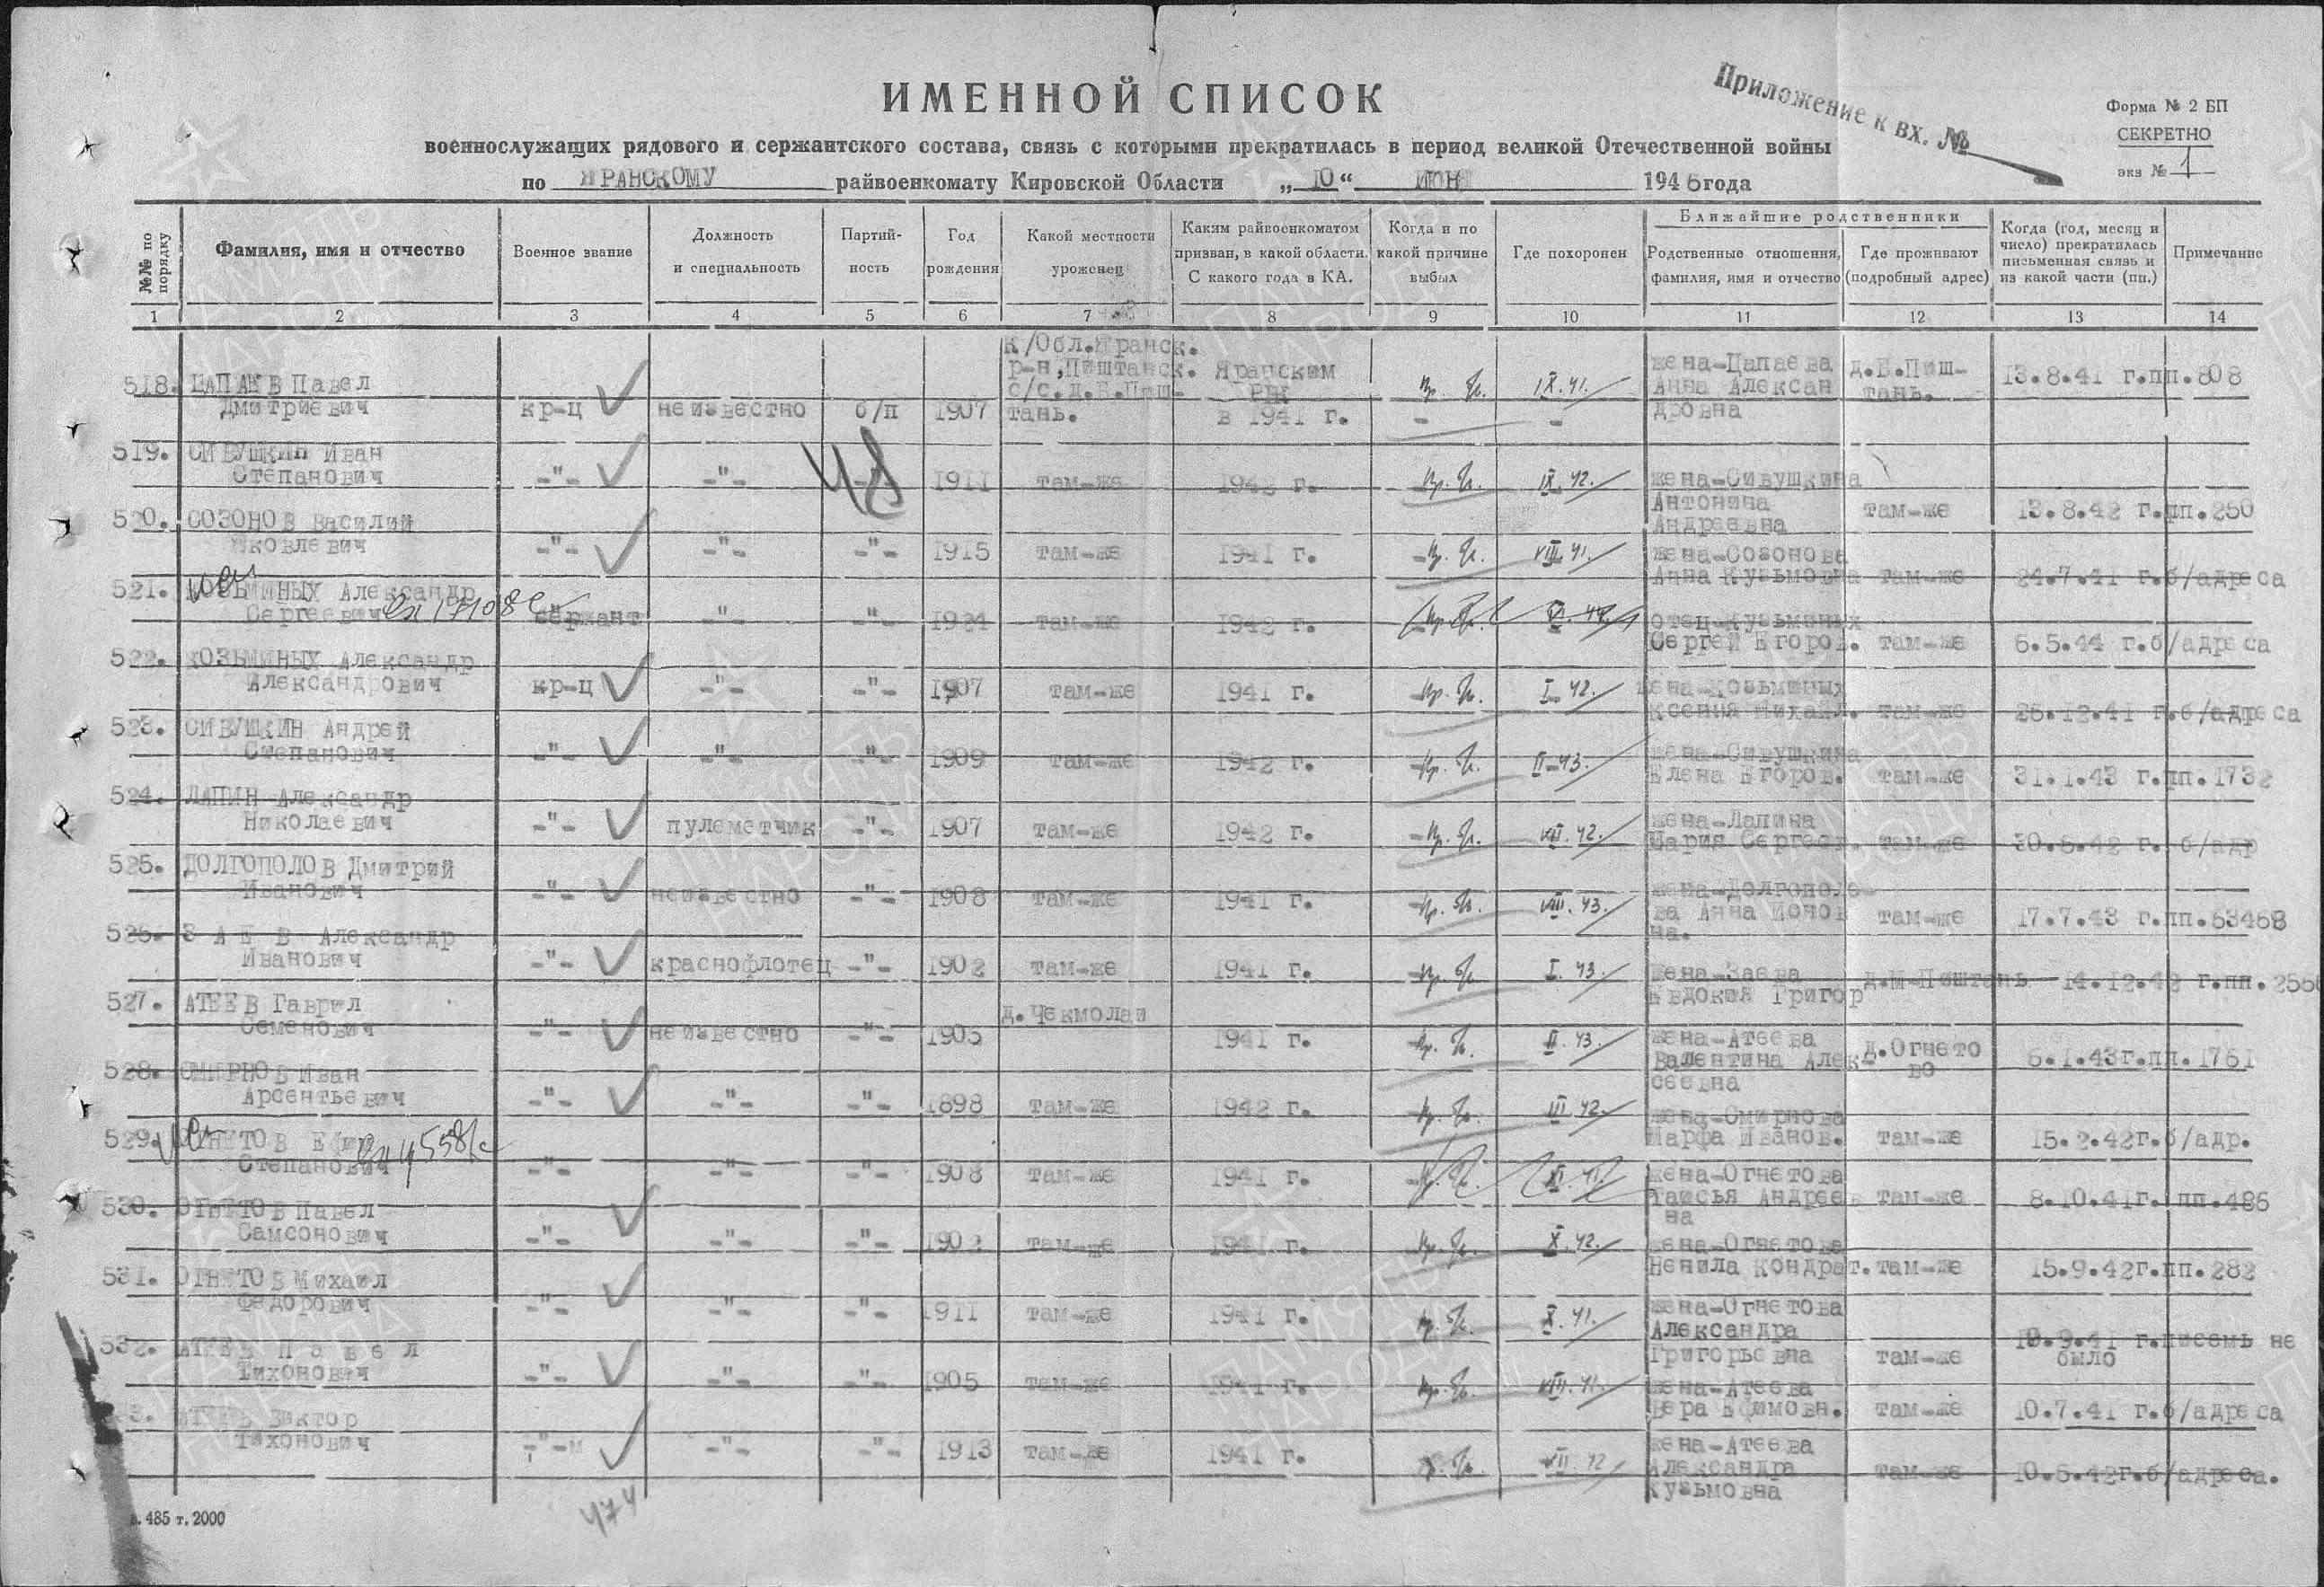 ИМЕННОЙ СПИСОК
Приложение к вх. №
Форма № 2 БП
СЕКРЕТНО
экз № 1
военнослужащих рядового и сержантского состава, связь с которыми прекратилась в период великой Отечественной войны
по ЯРАНСКОМУ райвоенкомату Кировской Области „10“ ИЮНЯ 1946 года
№№ по порядку
Фамилия, имя и отчество
Военное звание
Должность и специальность
Партийность
Год рождения
Какой местности уроженец
Каким райвоенкоматом призван, в какой области. С какого года в КА.
Когда и по какой причине выбыл
Где похоронен
Ближайшие родственники
Родственные отношения, фамилия, имя и отчество
Где проживают (подробный адрес)
Когда (год, месяц и число) прекратилась письменная связь и из какой части (пп.)
Примечание
1 2 3 4 5 6 7 8 9 10 11 12 13 14
518. ЦАПАЕВ Павел Дмитриевич кр-ц неизвестно б/п 1907 К/Обл.Яранск. р-н,Пиштанск. с/с.д.Б.Пиш- тань. Яранским РВК в 1941 г. IX.41. жена-Цапаева Анна Алексан дровна д.Б.Пиш- тань. 13.8.41 г.пп.808
519. СИВУШКИН Иван Степанович -"- -"- 1911 там-же 1942 г. IX.42. жена-Сивушкина Антонина Андреевна там-же 13.8.42 г.пп.250
520. СОЗОНОВ Василий Яковлевич -"- -"- -"- 1915 там-же 1941 г. VIII.41. жена-Созонова Анна Кузьмовна там-же 24.7.41 г.б/адреса
521. КОЗЬМИНЫХ Александр Сергеевич сержант -"- -"- 1924 там-же 1942 г. отец-Кузьминых Сергей Егоров. там-же 6.5.44 г.б/адреса
522. КОЗЬМИНЫХ Александр Александрович кр-ц -"- -"- 1907 там-же 1941 г. I.42. жена-Козьминых Ксения Михайл. там-же 26.12.41 г.б/адреса
523. СИВУШКИН Андрей Степанович -"- -"- -"- 1909 там-же 1942 г. II.43. жена-Сивушкина Елена Егоров. там-же 31.1.43 г.пп.1732
524. ЛАПИН Александр Николаевич -"- пулеметчик -"- 1907 там-же 1942 г. VIII.42. жена-Лапина Мария Сергеев. там-же 30.6.42 г. б/адр
525. ДОЛГОПОЛОВ Дмитрий Иванович -"- неизвестно -"- 1908 там-же 1941 г. VIII.43. жена-Долгополо- ва Анна Ионов на. там-же 17.7.43 г.пп.63468
526. З А Е В Александр Иванович -"- краснофлотец -"- 1902 там-же 1941 г. I.43. жена-Заева Евдокия Григор д.М-Пиштань 14.12.42 г.пп.
527. АТЕЕВ Гаврил Семенович -"- неизвестно -"- 1905 д.Чекмолаи 1941 г. II.43. жена-Атеева Валентина Алек- сеевна д.Огнето во 6.1.43г.пп.1761
528. СМИРНОВ Иван Арсентьевич -"- -"- -"- 1898 там-же 1942 г. III.42. жена-Смирнова Марфа Иванов. там-же 15.2.42г.б/адр.
529. ОГНЕТОВ Ефим Степанович -"- -"- -"- 1908 там-же 1941 г. XI.41. жена-Огнетова Таисья Андреев на там-же 8.10.41г. пп.486
530. ОГНЕТОВ Павел Самсонович -"- -"- -"- 1902 там-же 1941 г. X.42. жена-Огнетова Ненила Кондрат. там-же 15.9.42г.пп.282
531. ОГНЕТОВ Михаил Федорович -"- -"- -"- 1911 там-же 1941 г. X.41. жена-Огнетова Александра Григорьевна там-же 19.9.41 г.писемь не было
532. АТЕЕВ П а в е л Тихонович -"- -"- -"- 1905 там-же 1941 г. VIII.41. жена-Атеева Вера Ефимовн. там-же 10.7.41 г.б/адреса
3. АТЕЕВ Виктор Тихонович -"- -"- -"- 1913 там-же 1941 г. жена-Атеева Александра Кузьмовна там-же 10.6.42г.б/адреса.
474
485 т. 2000
ПАМЯТЬ НАРОДА